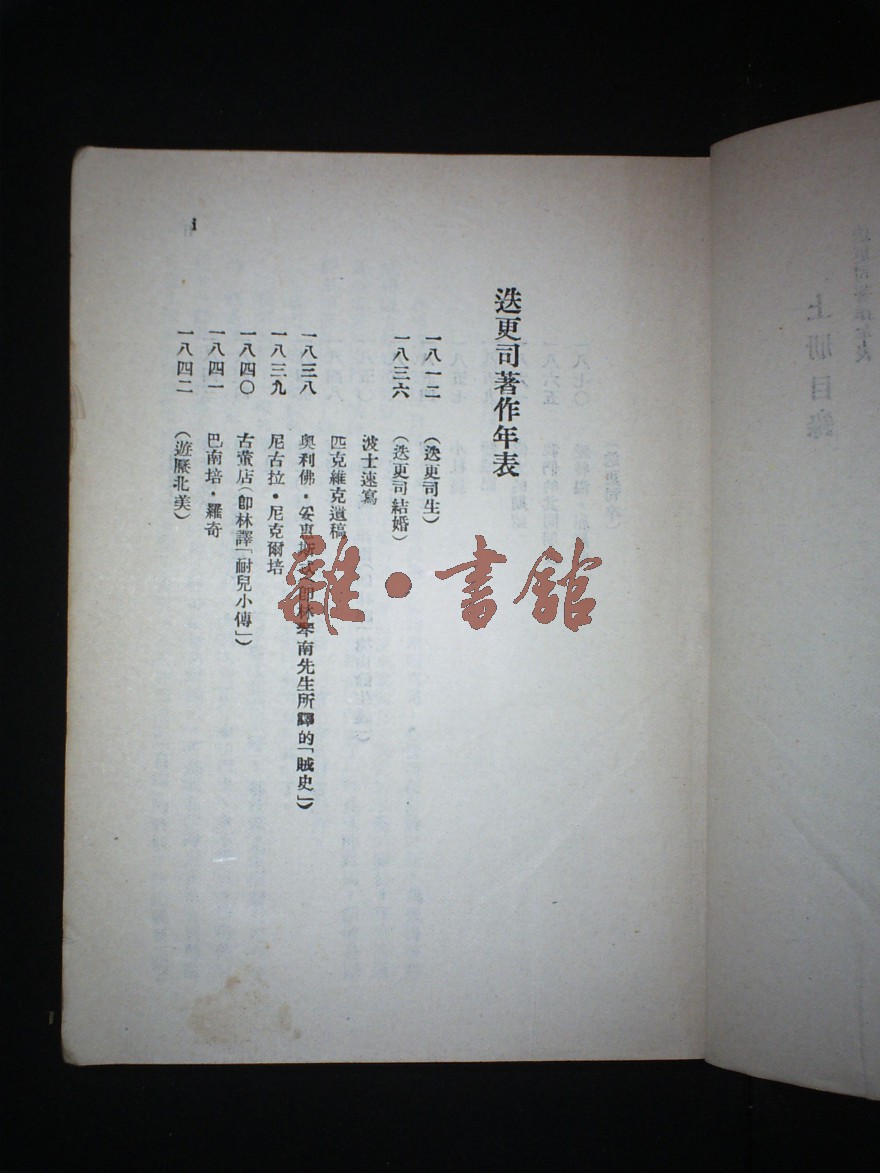 迭更司著作年表
一八一二 （迭更司生）
一八三六 （迭更司結婚）
波士速寫
匹克維克遺稿
一八三八 奧利佛・妥惠斯忒（卽林琴南先生所譯的「賊史」）
一八三九 尼古拉・尼克爾培
一八四〇 古董店（卽林譯「耐兒小傳」）
一八四一 巴南培・羅奇
一八四二 （遊歷北美）
i
雜・書館
上册目錄